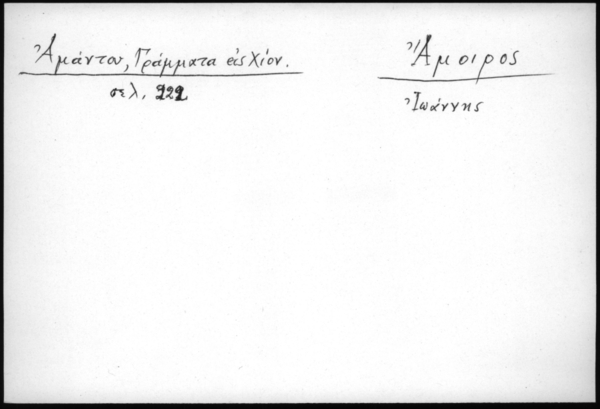 Ἀμάντου, Γράμματα εἰς Χίον.
σελ. 221
Ἄμοιρος
Ἰωάννης